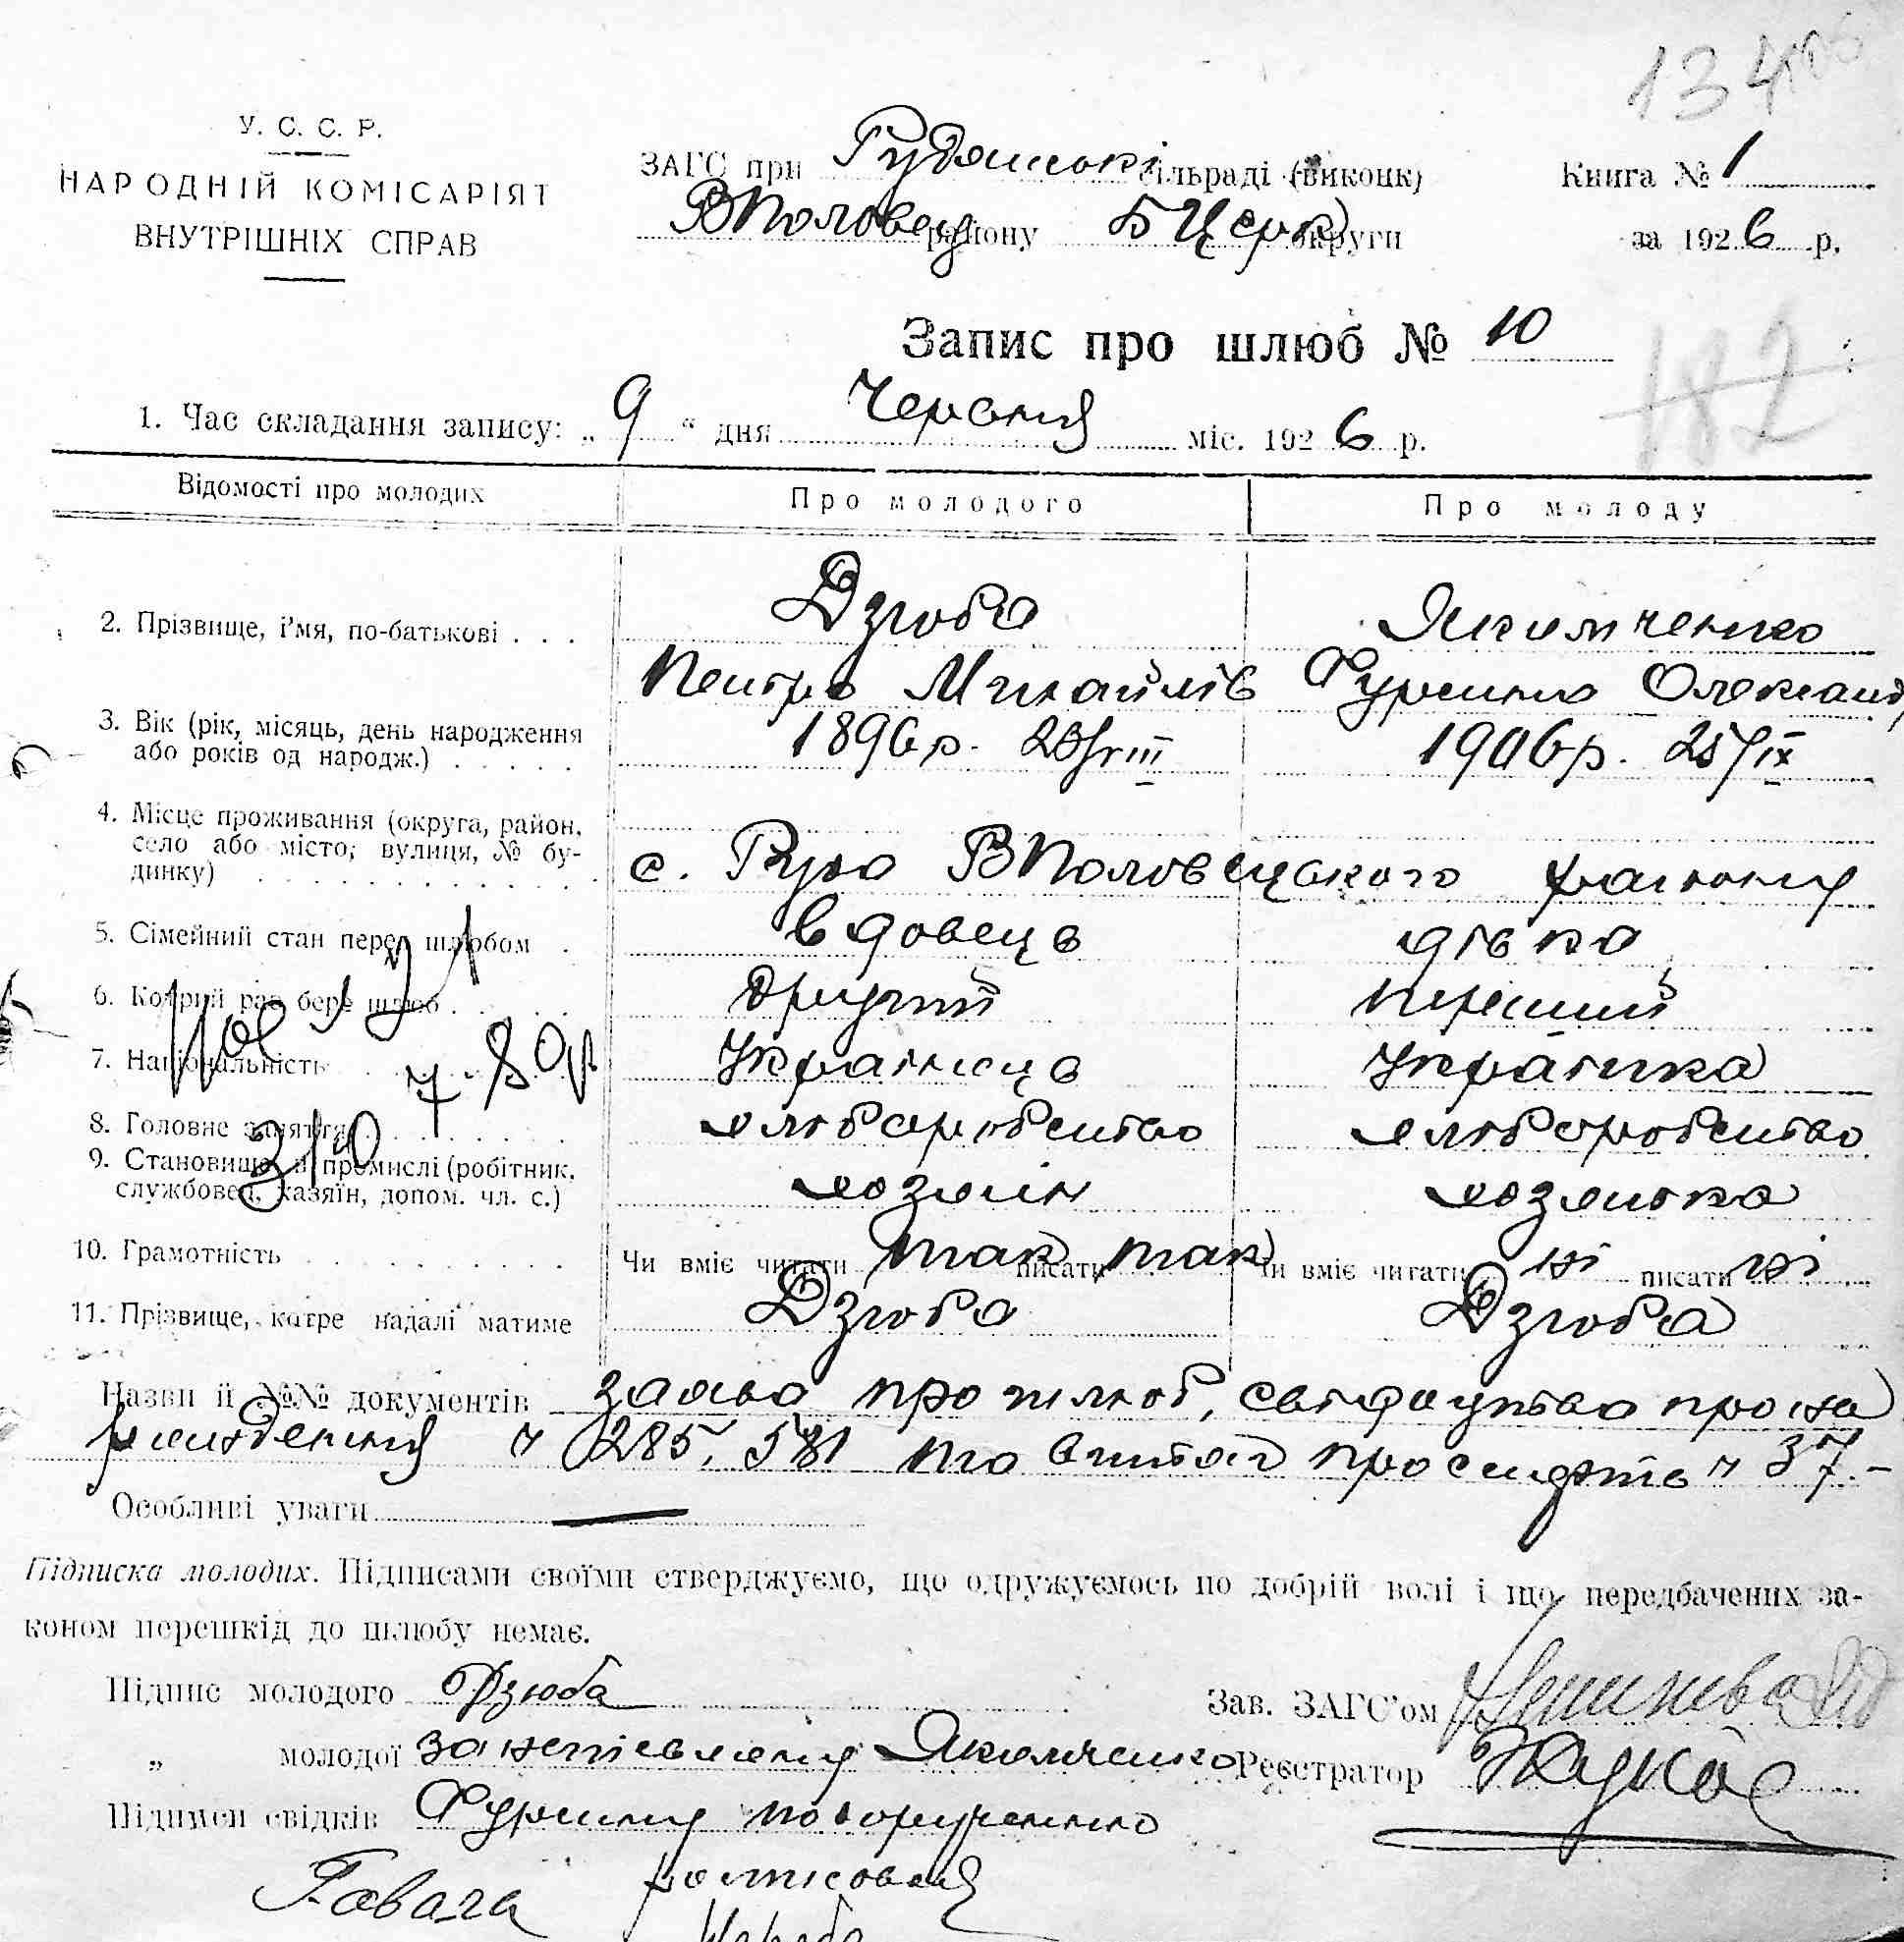 134
У. С. С. Р.
НАРОДНІЙ КОМІСАРІЯТ
ВНУТРІШНІХ СПРАВ
ЗАГС при Рудянські сільраді (виконк)
ВПоловец району БЦерк округи
Книга № 1
за 1926 р.
Запис про шлюб № 10
182
1. Час складання запису: „ 9 “ дня Червня міс. 1926 р.
Відомості про молодих Про молодого Про молоду
2. Прізвище, і'мя, по-батькові . . . Дзюба Якимченко
Петро Михайлів Фросина Олександ
3. Вік (рік, місяць, день народження 1896 р. 1906 р. 25/IX
або років од народж.) . . . . .
4. Місце проживання (округа, район,
село або місто; вулиця, № бу- с. Руда ВПоловецького району
динку)
5. Сімейний стан перед шлюбом . вдовець дівка
6. Котрий раз бере шлюб . . . . другий перший
7. Національність Українець Українка
8. Головне заняття хліборобство хліборобство
9. Становище в промислі (робітник, хозяін хозяйка
службовец, хазяїн, допом. чл. с.)
10. Грамотність Чи вміє читати так писати так Чи вміє читати ні писати ні
11. Прізвище, котре надалі матиме Дзюба Дзюба
Назви й №№ документів заява про шлюб, свідоцтво про на
рождення ч 285, 581 та витяг про смерть ч 37.-
Особливі уваги —
Підписка молодих. Підписами своїми стверджуємо, що одружуємось по добрій волі і що передбачених за-
коном перешкід до шлюбу немає.
Підпис молодого Дзюба Зав. ЗАГС'ом
„ молодої за неписьменну Якимченко Реєстратор
Підписи свідків Фросину по дорученню
росписовся